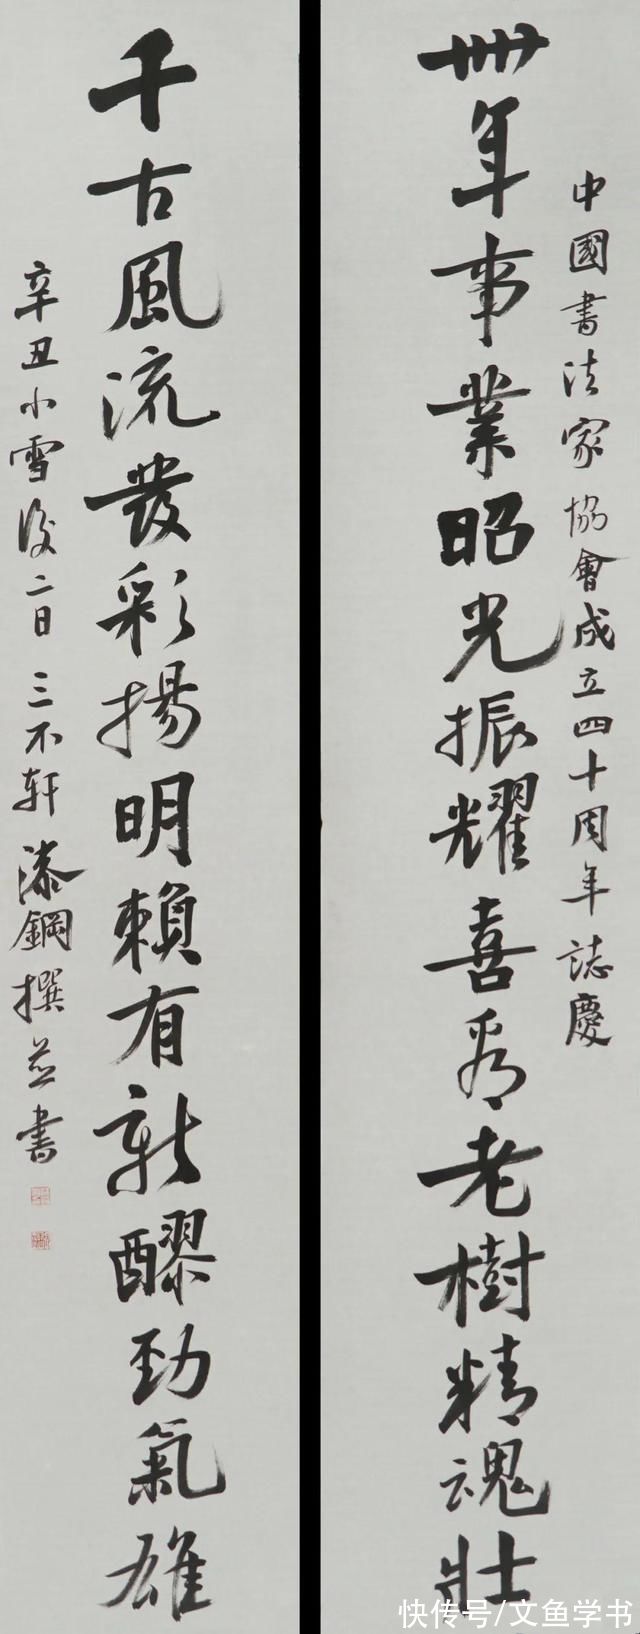 中國書法家協會成立四十周年誌慶
卌年事業昭光振耀喜看老樹精魂壯
千古風流發彩揚明賴有新醪勁氣雄
辛丑小雪後二日三不軒漆鋼撰並書
快传号/文鱼学书